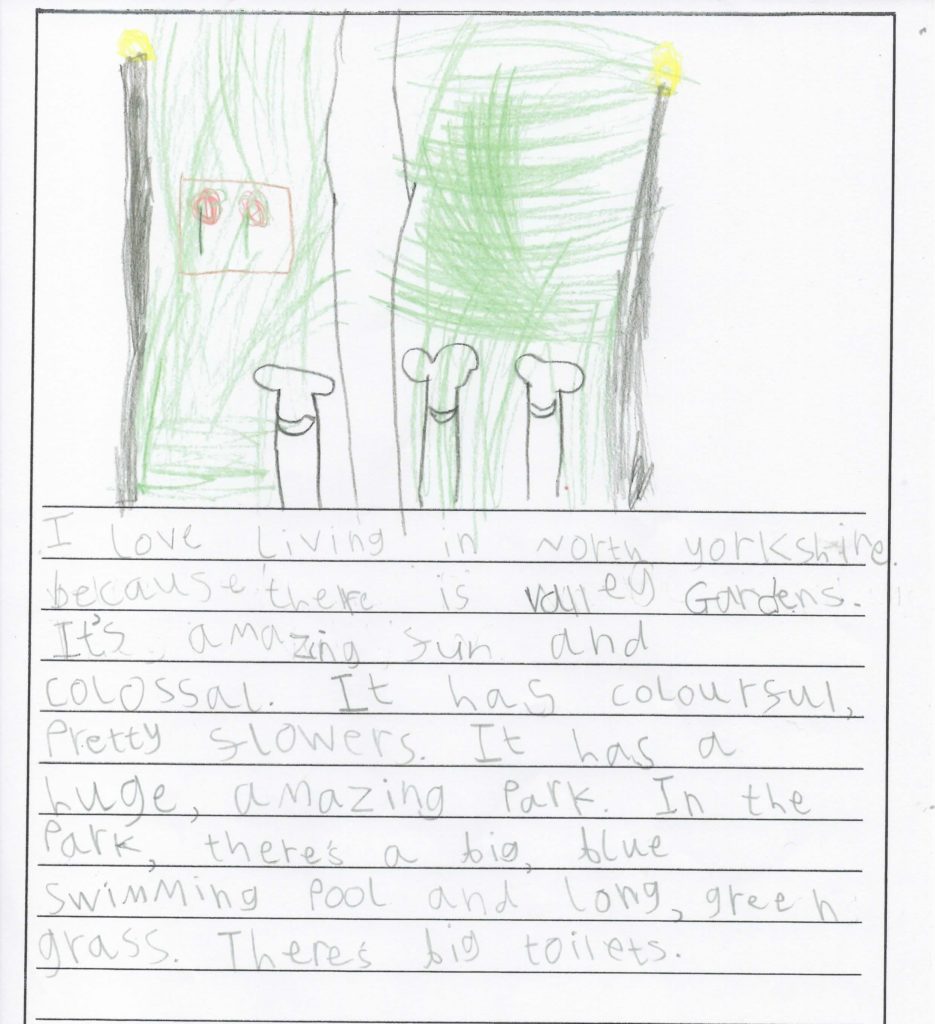 I love living in North yorkshire
because there is valley Gardens.
It's amazing fun and
colossal. It has colourful,
Pretty flowers. It has a
huge, amazing Park. In the
Park, there's a big, blue
swimming Pool and long, green
grass. There's big toilets.